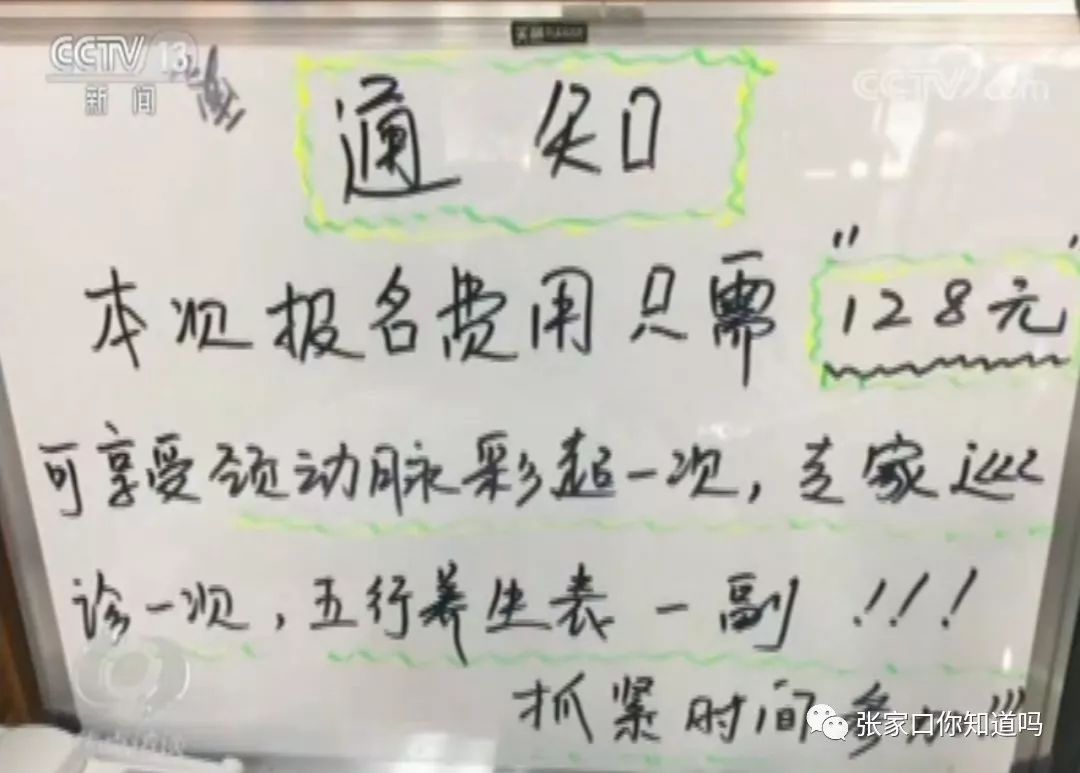 CCTV 13
新闻
CCTV.com
通知
本次报名费用只需“128元”
可享受颈动脉彩超一次，专家巡
诊一次，五行养生表一副！！！
抓紧时间参加！！！
张家口你知道吗